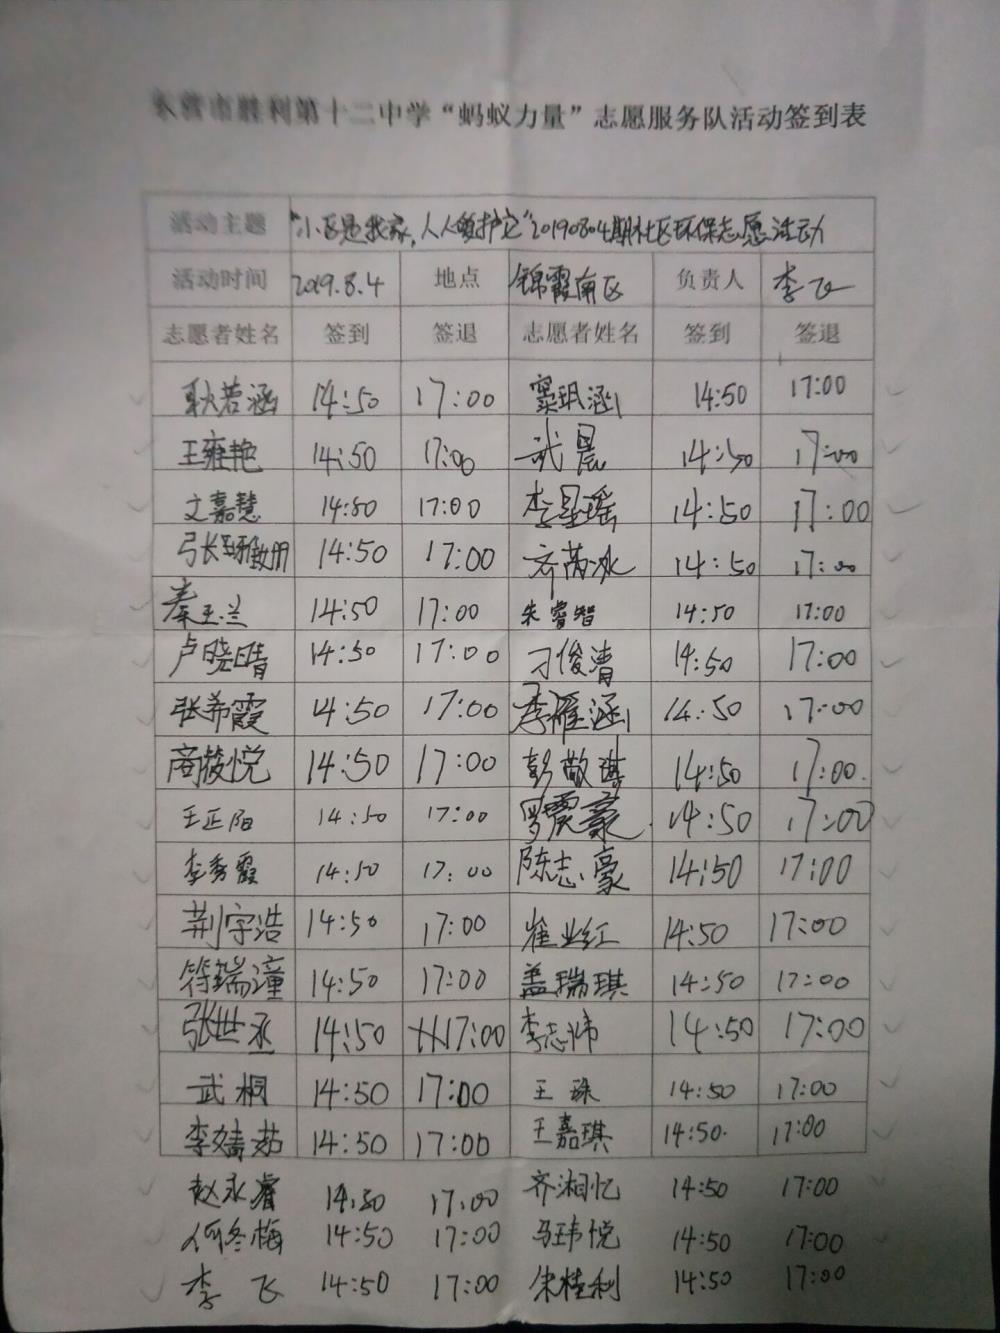 东营市胜利第十二中学“蚂蚁力量”志愿服务队活动签到表
活动主题 “小区是我家,人人爱护它”20190804期社区环保志愿活动
活动时间 2019.8.4 地点 锦霞南区 负责人 李飞
志愿者姓名 签到 签退 志愿者姓名 签到 签退
耿若涵 14:50 17:00 窦珼涵 14:50 17:00
王雍艳 14:50 17:00 武晨 14:50 17:00
文嘉慧 14:50 17:00 李星瑶 14:50 17:00
张雅册 14:50 17:00 齐芮冰 14:50 17:00
秦玉兰 14:50 17:00 朱睿智 14:50 17:00
卢晓晴 14:50 17:00 刁俊清 14:50 17:00
张希霞 14:50 17:00 李雁涵 14:50 17:00
商筱悦 14:50 17:00 彭敬淇 14:50 17:00
王正阳 14:50 17:00 罗震豪 14:50 17:00
李秀霞 14:50 17:00 陈志豪 14:50 17:00
荆宇浩 14:50 17:00 崔业红 14:50 17:00
符瑞潼 14:50 17:00 盖瑞琪 14:50 17:00
张世丞 14:50 17:00 李志沛 14:50 17:00
武桐 14:50 17:00 王珠 14:50 17:00
李婧茹 14:50 17:00 王嘉琪 14:50 17:00
赵永睿 14:50 17:00 齐湘忆 14:50 17:00
何冬梅 14:50 17:00 马玮悦 14:50 17:00
李飞 14:50 17:00 朱桂利 14:50 17:00